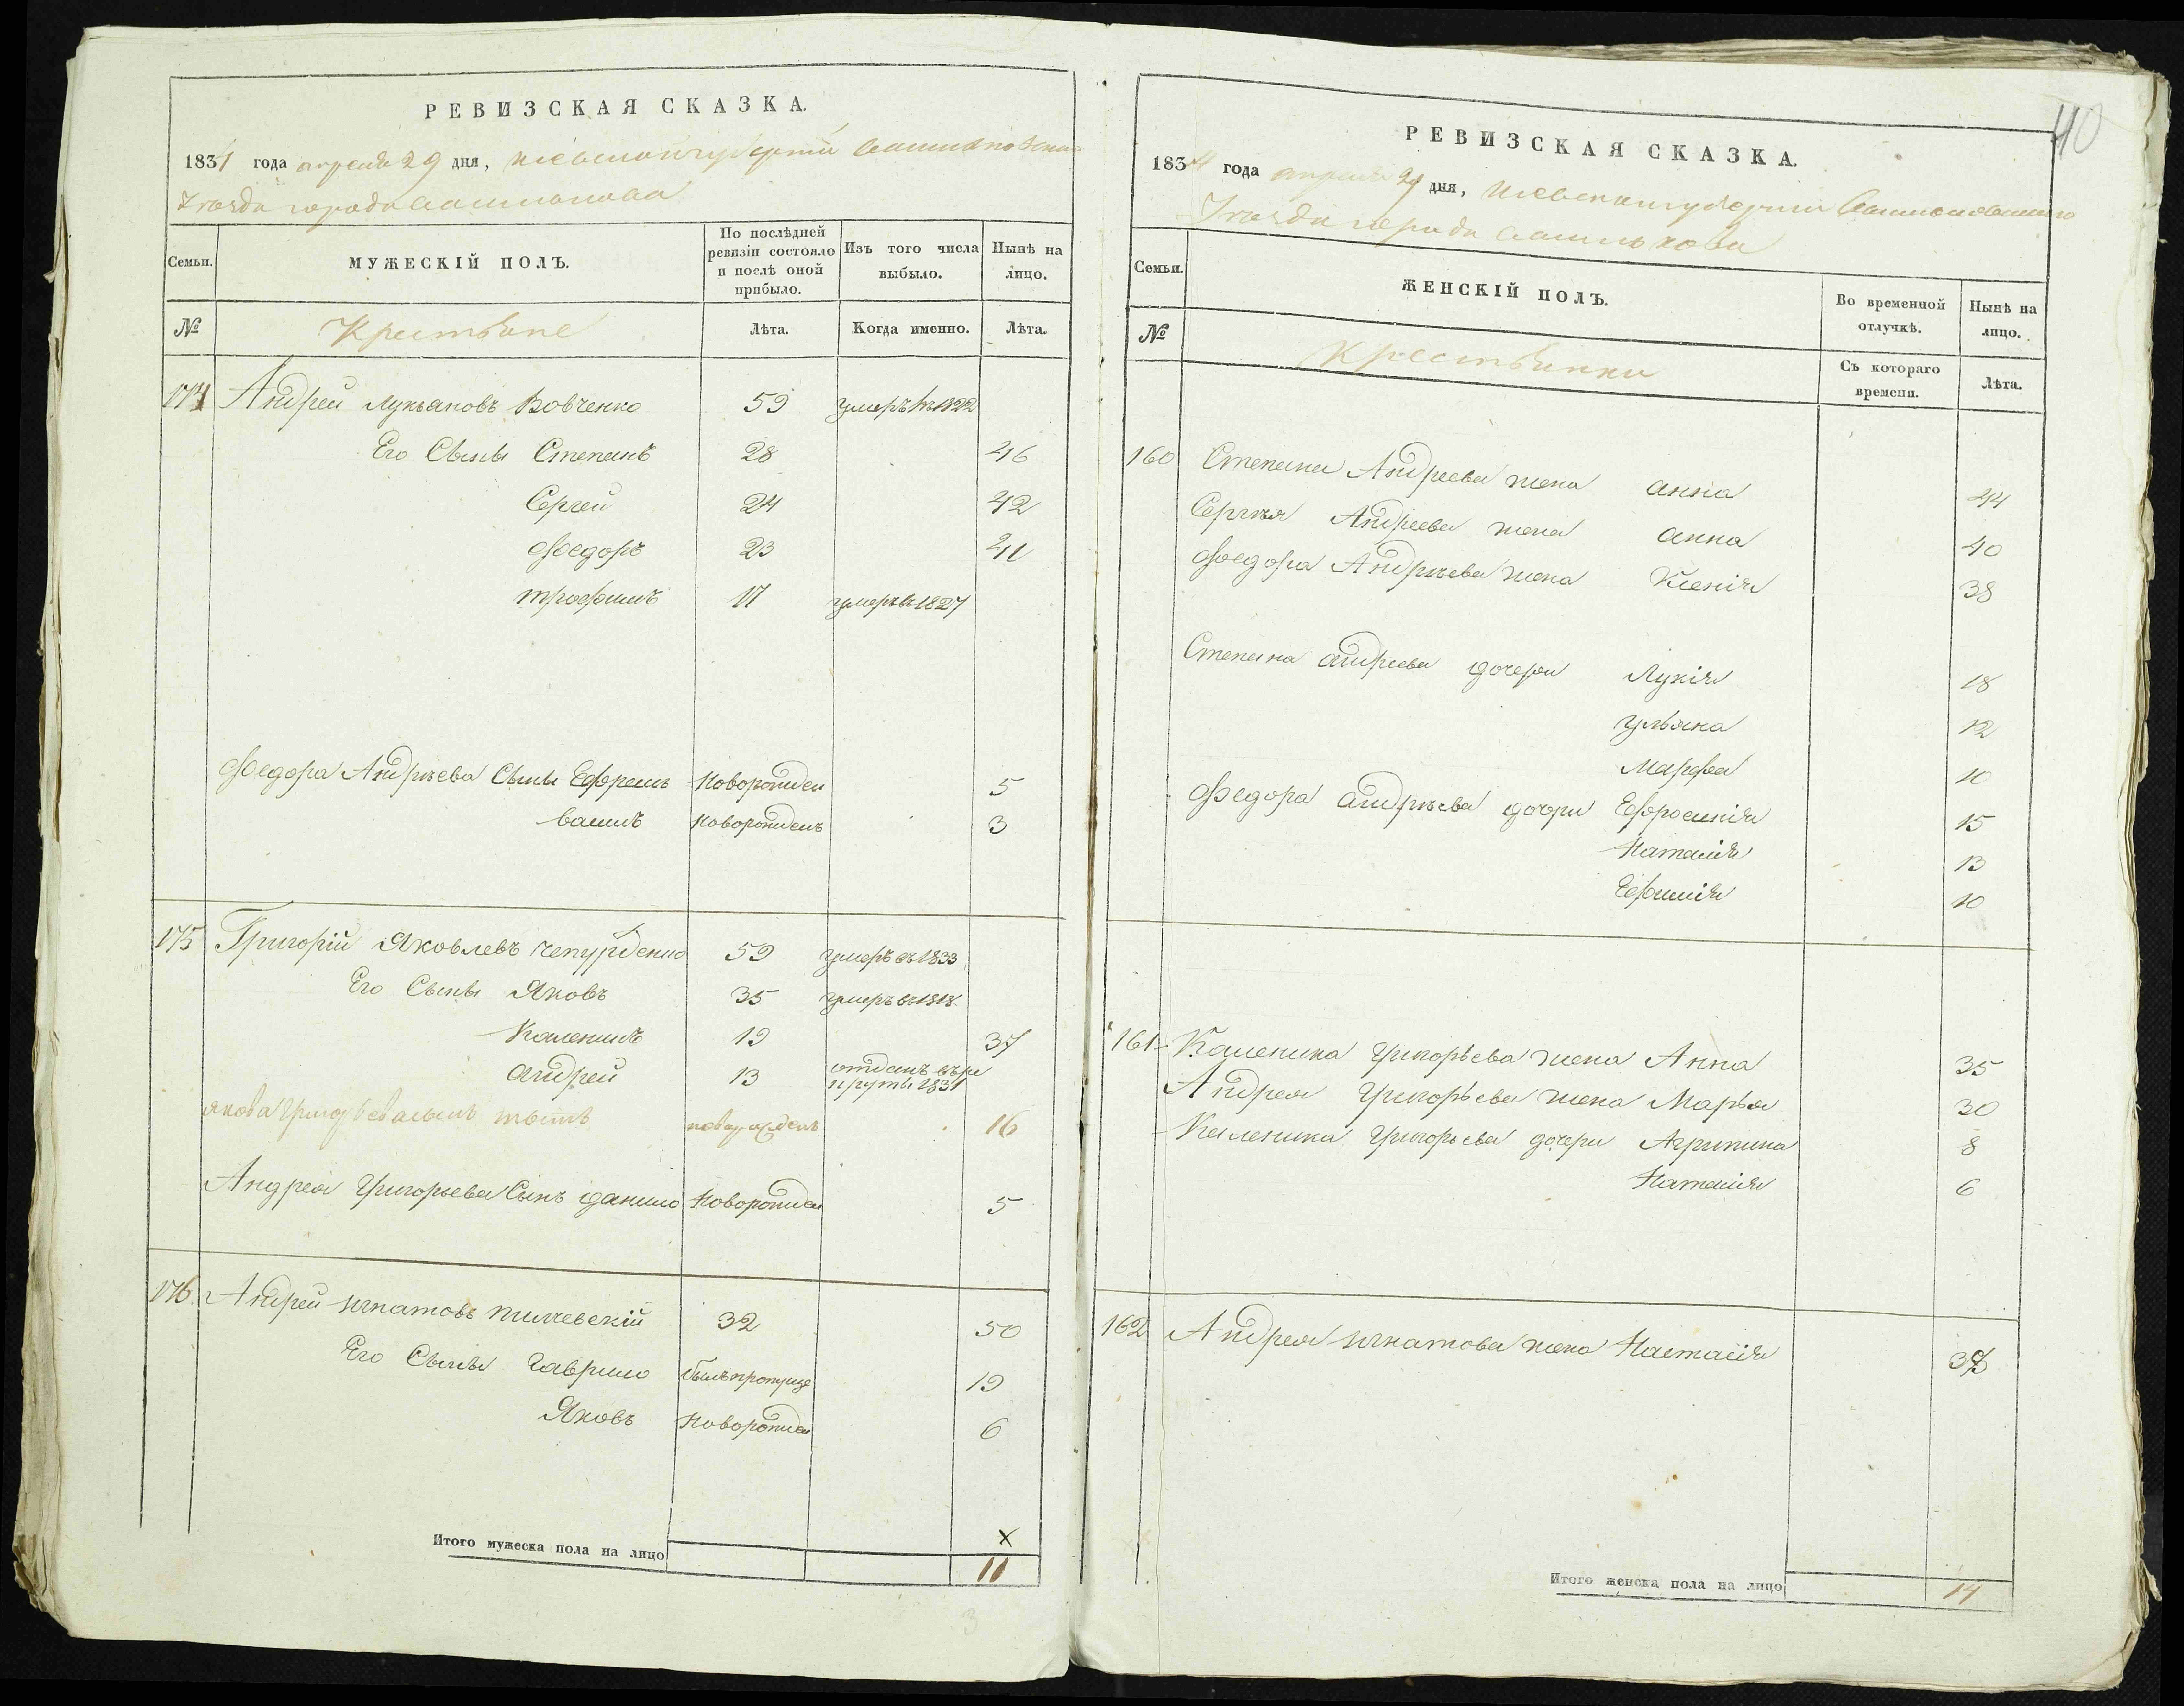 РЕВИЗСКАЯ СКАЗКА.
1834 года апреля 29 дня, Киевской губерніи Васильковскаго
уезда города Василькова
Семьи.
МУЖЕСКІЙ ПОЛЪ.
По послѣдней ревизіи состояло и послѣ оной прибыло.
Изъ того числа выбыло.
Нынѣ на лицо.
№
Крестьяне
Лѣта.
Когда именно.
Лѣта.
174 Андрей Лукьяновъ Вовченко 59 умеръ въ 1822
Его Сыны Степанъ 28 46
Сергей 24 42
Федоръ 23 41
трофимъ 17 умеръ въ 1827
Федора Андреева Сыны Ефремъ Новорожден 5
василь Новорожденъ 3
175 Григорій Яковлевъ 59 умеръ въ 1833
Его Сыны Яковъ 35 умеръ въ 1818
Каленикъ 19 37
андрей 13 отданъ въ ре
круты 1831
якова Григорьева сынъ новорожденъ 16
Андрея Григорьева Сынъ данило Новорожден 5
176 Андрей игнатовъ 32 50
Его Сыны Гаврило былъ пропуще 19
Яковъ Новорожден 6
Итого мужеска пола на лицо
х
11
3
110
РЕВИЗСКАЯ СКАЗКА.
1834 года апреля 29 дня, Киевской губерніи Васильковскаго
уезда города Василькова
Семьи.
ЖЕНСКІЙ ПОЛЪ.
Во временной отлучкѣ.
Нынѣ на лицо.
№
Крестьянки
Съ котораго времени.
Лѣта.
160 Степана Андреева жена анна 44
Сергея Андреева жена анна 40
Федора Андреева жена Ксенія 38
Степана андреева дочери Лукія 18
ульяна 12
Марфа 10
Федора андреева дочери Ефросинія 15
Наталія 13
Ефимія 10
161 Каленика Григорьева жена Анна 35
Андрея Григорьева жена Марья 30
Каленика Григорьева дочери Агрипина 8
Наталія 6
162 Андрея игнатова жена Настасія 38
Итого женска пола на лицо 14